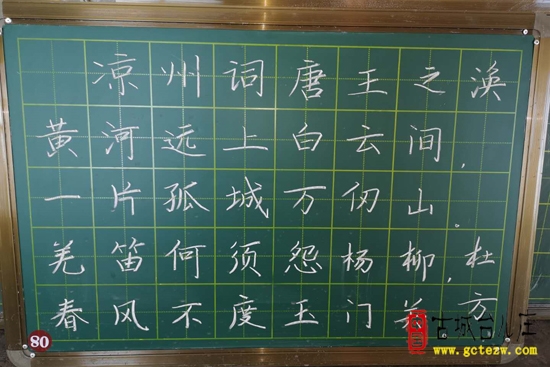 凉州词唐王之涣
黄河远上白云间，
一片孤城万仞山。
羌笛何须怨杨柳，杜
春风不度玉门关方
80
www.gctezw.com